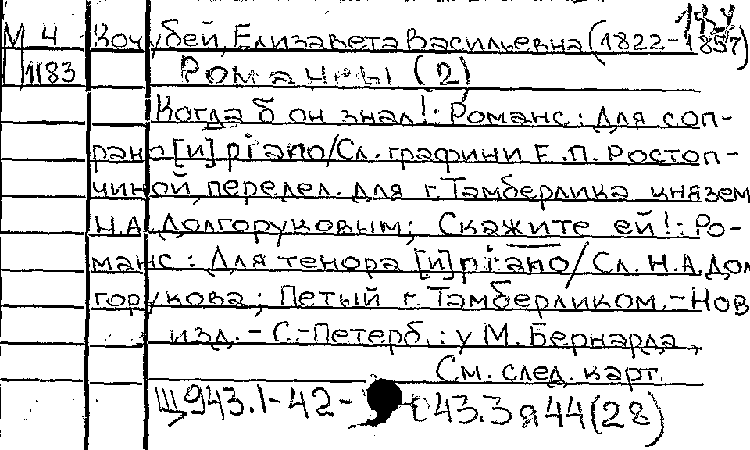 М 4 Кочубей, Елизавета Васильевна (1822-1897)
П 1183 Романсы (2)
Когда б он знал!: Романс: Для соп-
рано [и] piano / Сл. графини Е.П.Ростоп-
чиной, передел. для г. Тамберлика князем
Н.А. Долгоруковым; Скажите ей!: Ро-
манс: Для тенора [и] piano / Сл. Н.А. Дол
горукова; Петый г. Тамберликом. - Нов
изд. - С.-Петерб.: у М. Бернарда,
См. след. карт.
Щ943.1-42- 943.3я44(28)